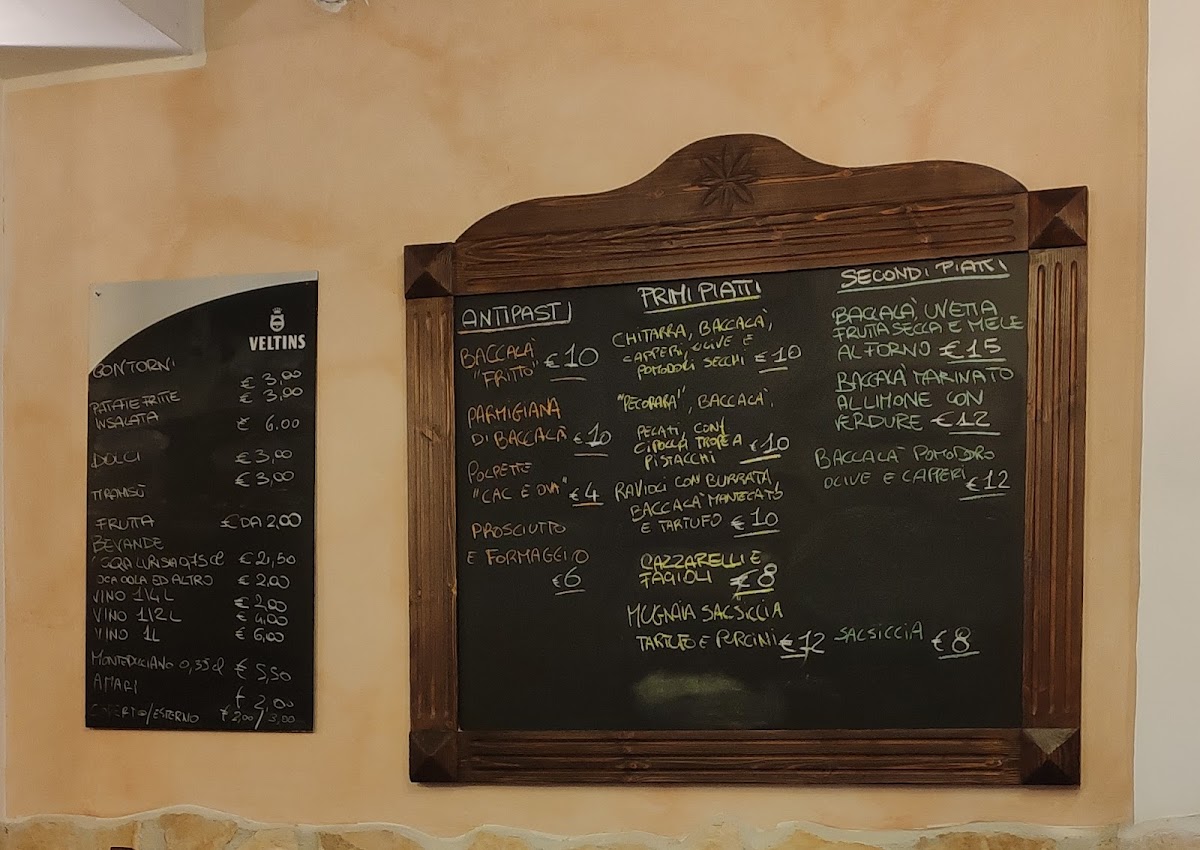 VELTINS
CONTORNI
€ 3,00
PATATE FRITTE € 3,00
INSALATA
€ 6.00
DOLCI
€ 3,00
€ 3,00
TIRAMISÙ
FRUTTA € DA 2,00
BEVANDE
LURISIA 0,75 cl € 2,50
COLA ED ALTRO € 2,00
VINO 1/4 L € 2,00
VINO 1/2 L € 4,00
VINO 1L € 6,00
MONTEPULCIANO 0,35 cl € 5,50
AMARI
€ 2,00
COPERTO/ESTERNO € 2,00/3,00
ANTIPASTI
BACCALÀ
"FRITTO" €10
PARMIGIANA
DI BACCALÀ €10
POLPETTE
"CAC E OVA" €4
PROSCIUTTO
E FORMAGGIO
€6
PRIMI PIATTI
CHITARRA, BACCALÀ,
CAPPERI, OLIVE E
POMODORI SECCHI €10
"PECORARA", BACCALÀ,
PELATI, CON
CIPOLLA TROPEA
PISTACCHI €10
RAVIOLI CON BURRATA,
BACCALÀ MANTECATO
E TARTUFO €10
CAZZARELLI E
FAGIOLI €8
MUGNAIA SALSICCIA
TARTUFO E PORCINI €12
SECONDI PIATTI
BACCALÀ UVETTA
FRUTTA SECCA E MELE
AL FORNO €15
BACCALÀ MARINATO
AL LIMONE CON
VERDURE €12
BACCALÀ POMODORO
OLIVE E CAPPERI €12
SALSICCIA €8